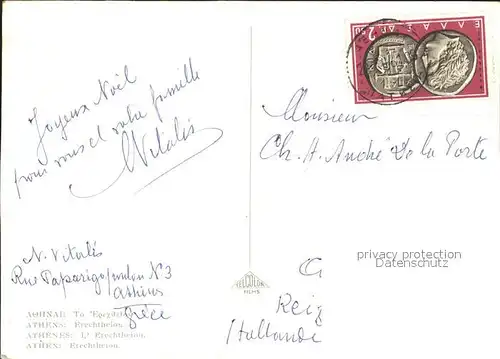 Joyeux Noël
pour vous et votre famille
N Vitalis
N. Vitalis
Rue Paparigopoulou N°3
Athènes
Grèce
ΑΘΗΝΑΙ: Το Ἐρεχθεῖο
ATHENS: Erechtheion.
ATHENES: L' Erechtheion.
ATHEN: Erechtheion.
ΕΛΛΑΣ ΔΡ. 2.50
DELCOLOR
Monsieur
Ch. A. André De la Porte
privacy protection
Datenschutz
Hollande